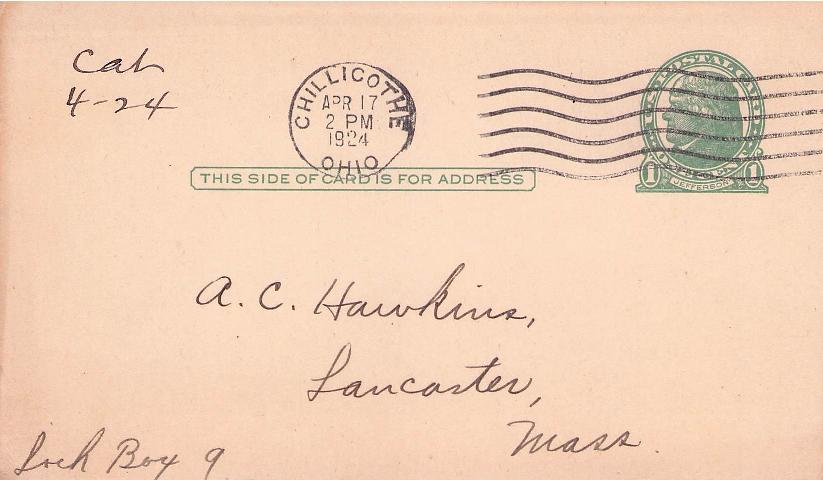 Cat
4-24
CHILLICOTHE
APR 17
2 PM
1924
OHIO
U.S. POSTAL CARD
1 JEFFERSON 1
THIS SIDE OF CARD IS FOR ADDRESS
A. C. Hawkins,
Lancaster,
Mass.
Lock Box 9